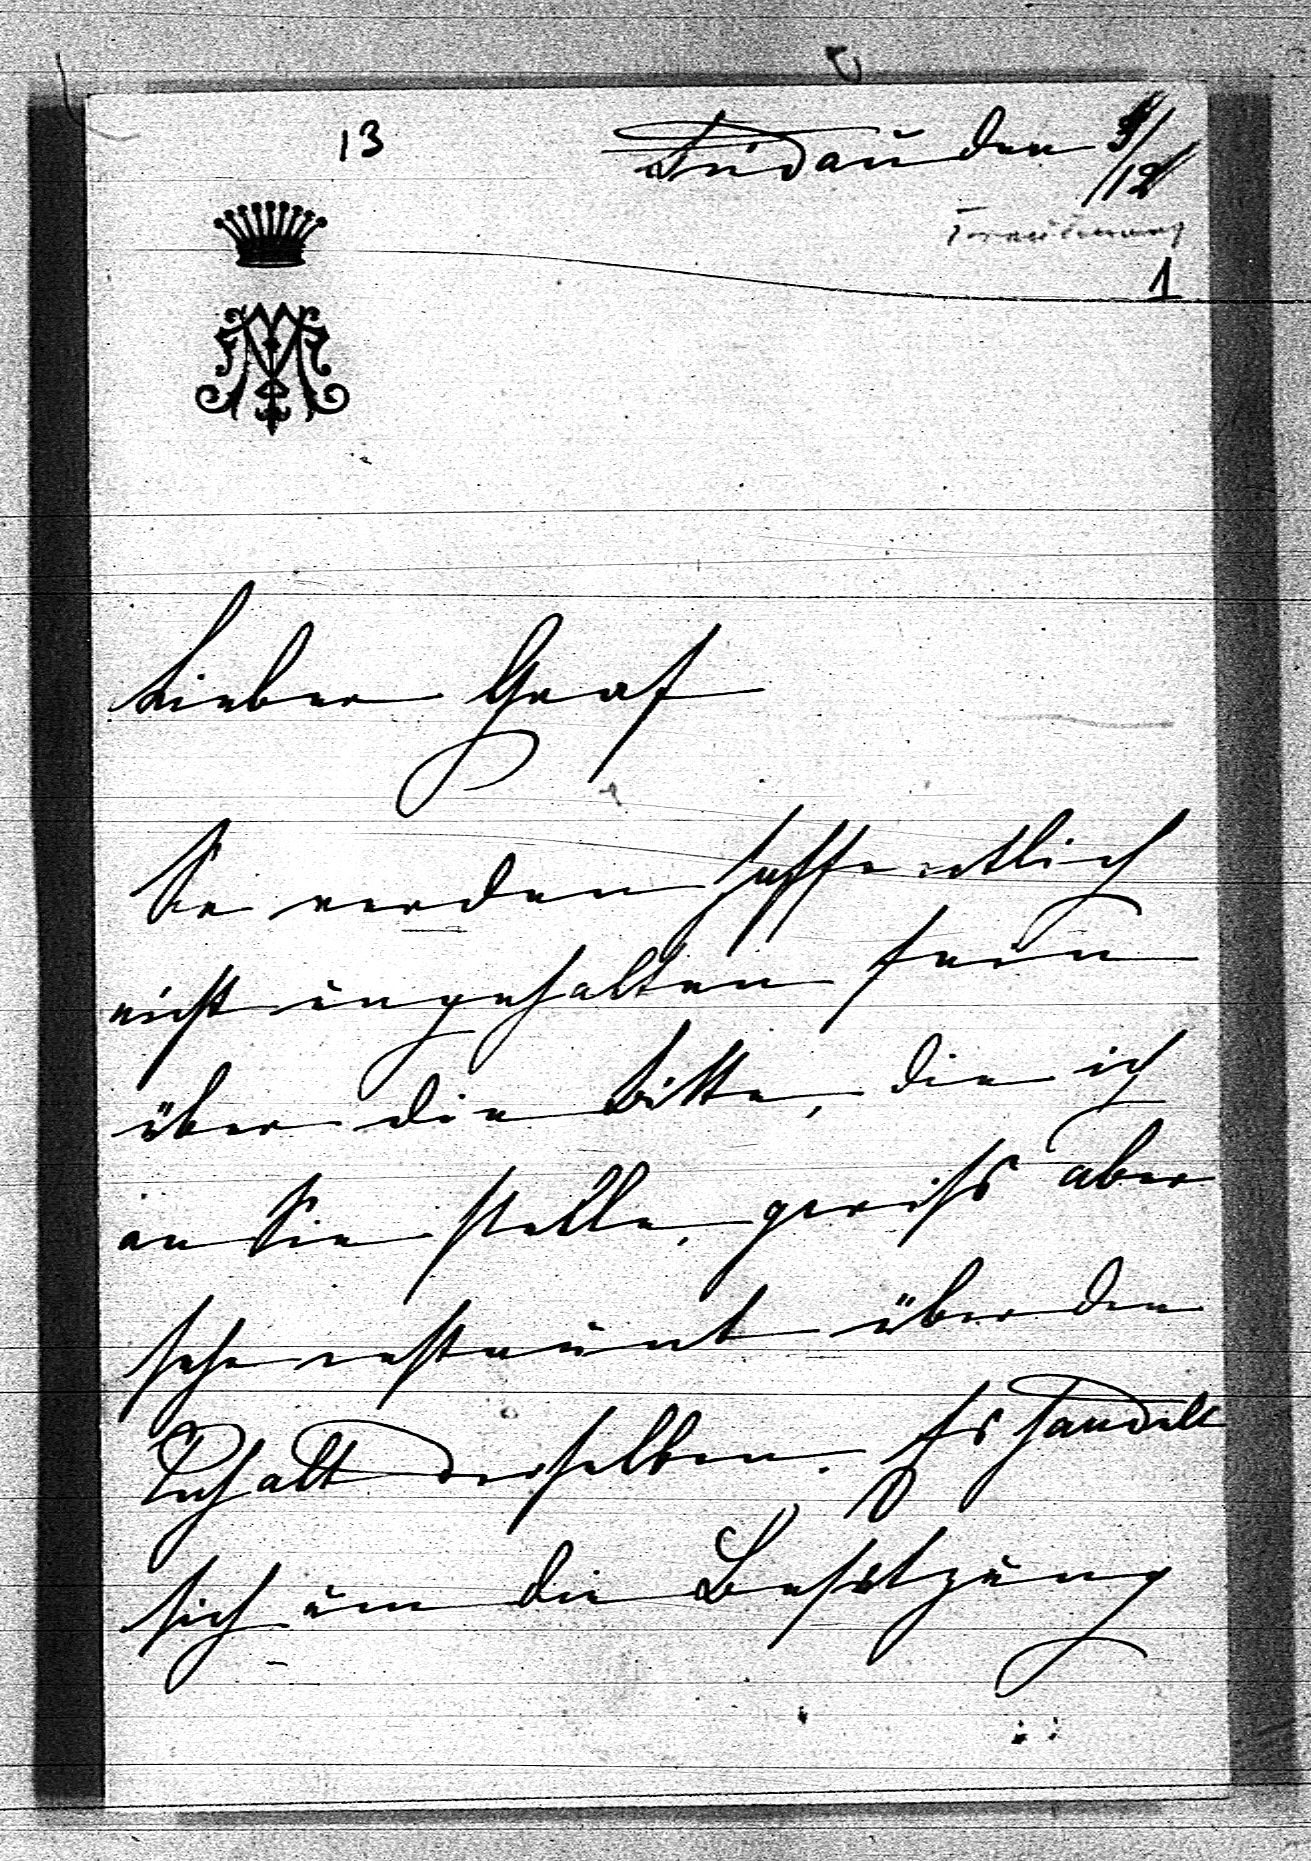 13
Lindau den 3/12
1
Lieber Graf
Sie werden hoffentlich
nicht ungehalten sein
über die Bitte, die ich
an Sie stelle, gewiss aber
sehr erstaunt über den
Inhalt derselben. Es handelt
sich um die Besetzung